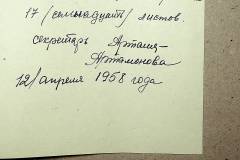 17 (семнадцать) листов.
секретарь
Артамонова
12/апреля 1958 года